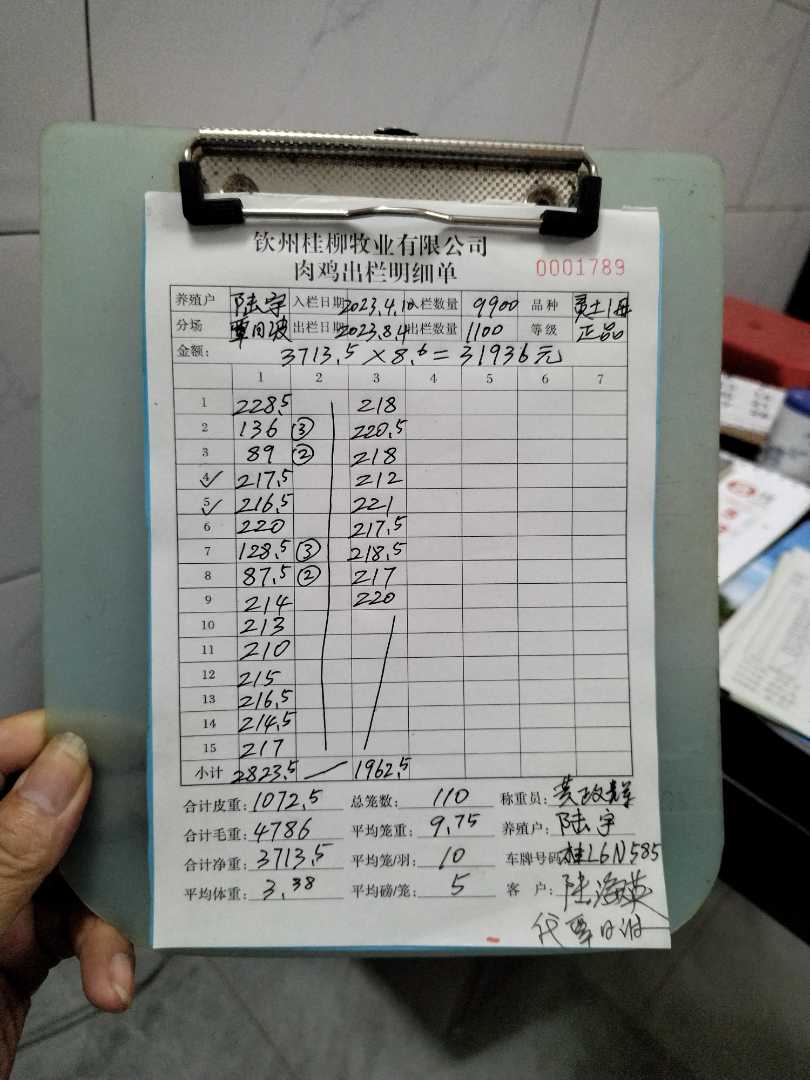 钦州桂柳牧业有限公司
肉鸡出栏明细单
0001789
养殖户 陆宇 入栏日期 2023.4.10 入栏数量 9900 品种 灵土1母
分场 覃日波 出栏日期 2023.8.4 出栏数量 1100 等级 正品
金额: 3713.5×8.6=31936元
1 2 3 4 5 6 7
1 228.5 218
2 136 ③ 220.5
3 89 ② 218
4 217.5 212
5 216.5 221
6 220 217.5
7 128.5 ③ 218.5
8 87.5 ② 217
9 214 220
10 213
11 210
12 215
13 216.5
14 214.5
15 217
小计 2823.5 1962.5
合计皮重: 1072.5 总笼数: 110 称重员:
合计毛重: 4786 平均笼重: 9.75 养殖户: 陆宇
合计净重: 3713.5 平均笼/羽: 10 车牌号码: 桂L6N585
平均体重: 3.38 平均磅/笼: 5 客户: 陆海英
代覃日波